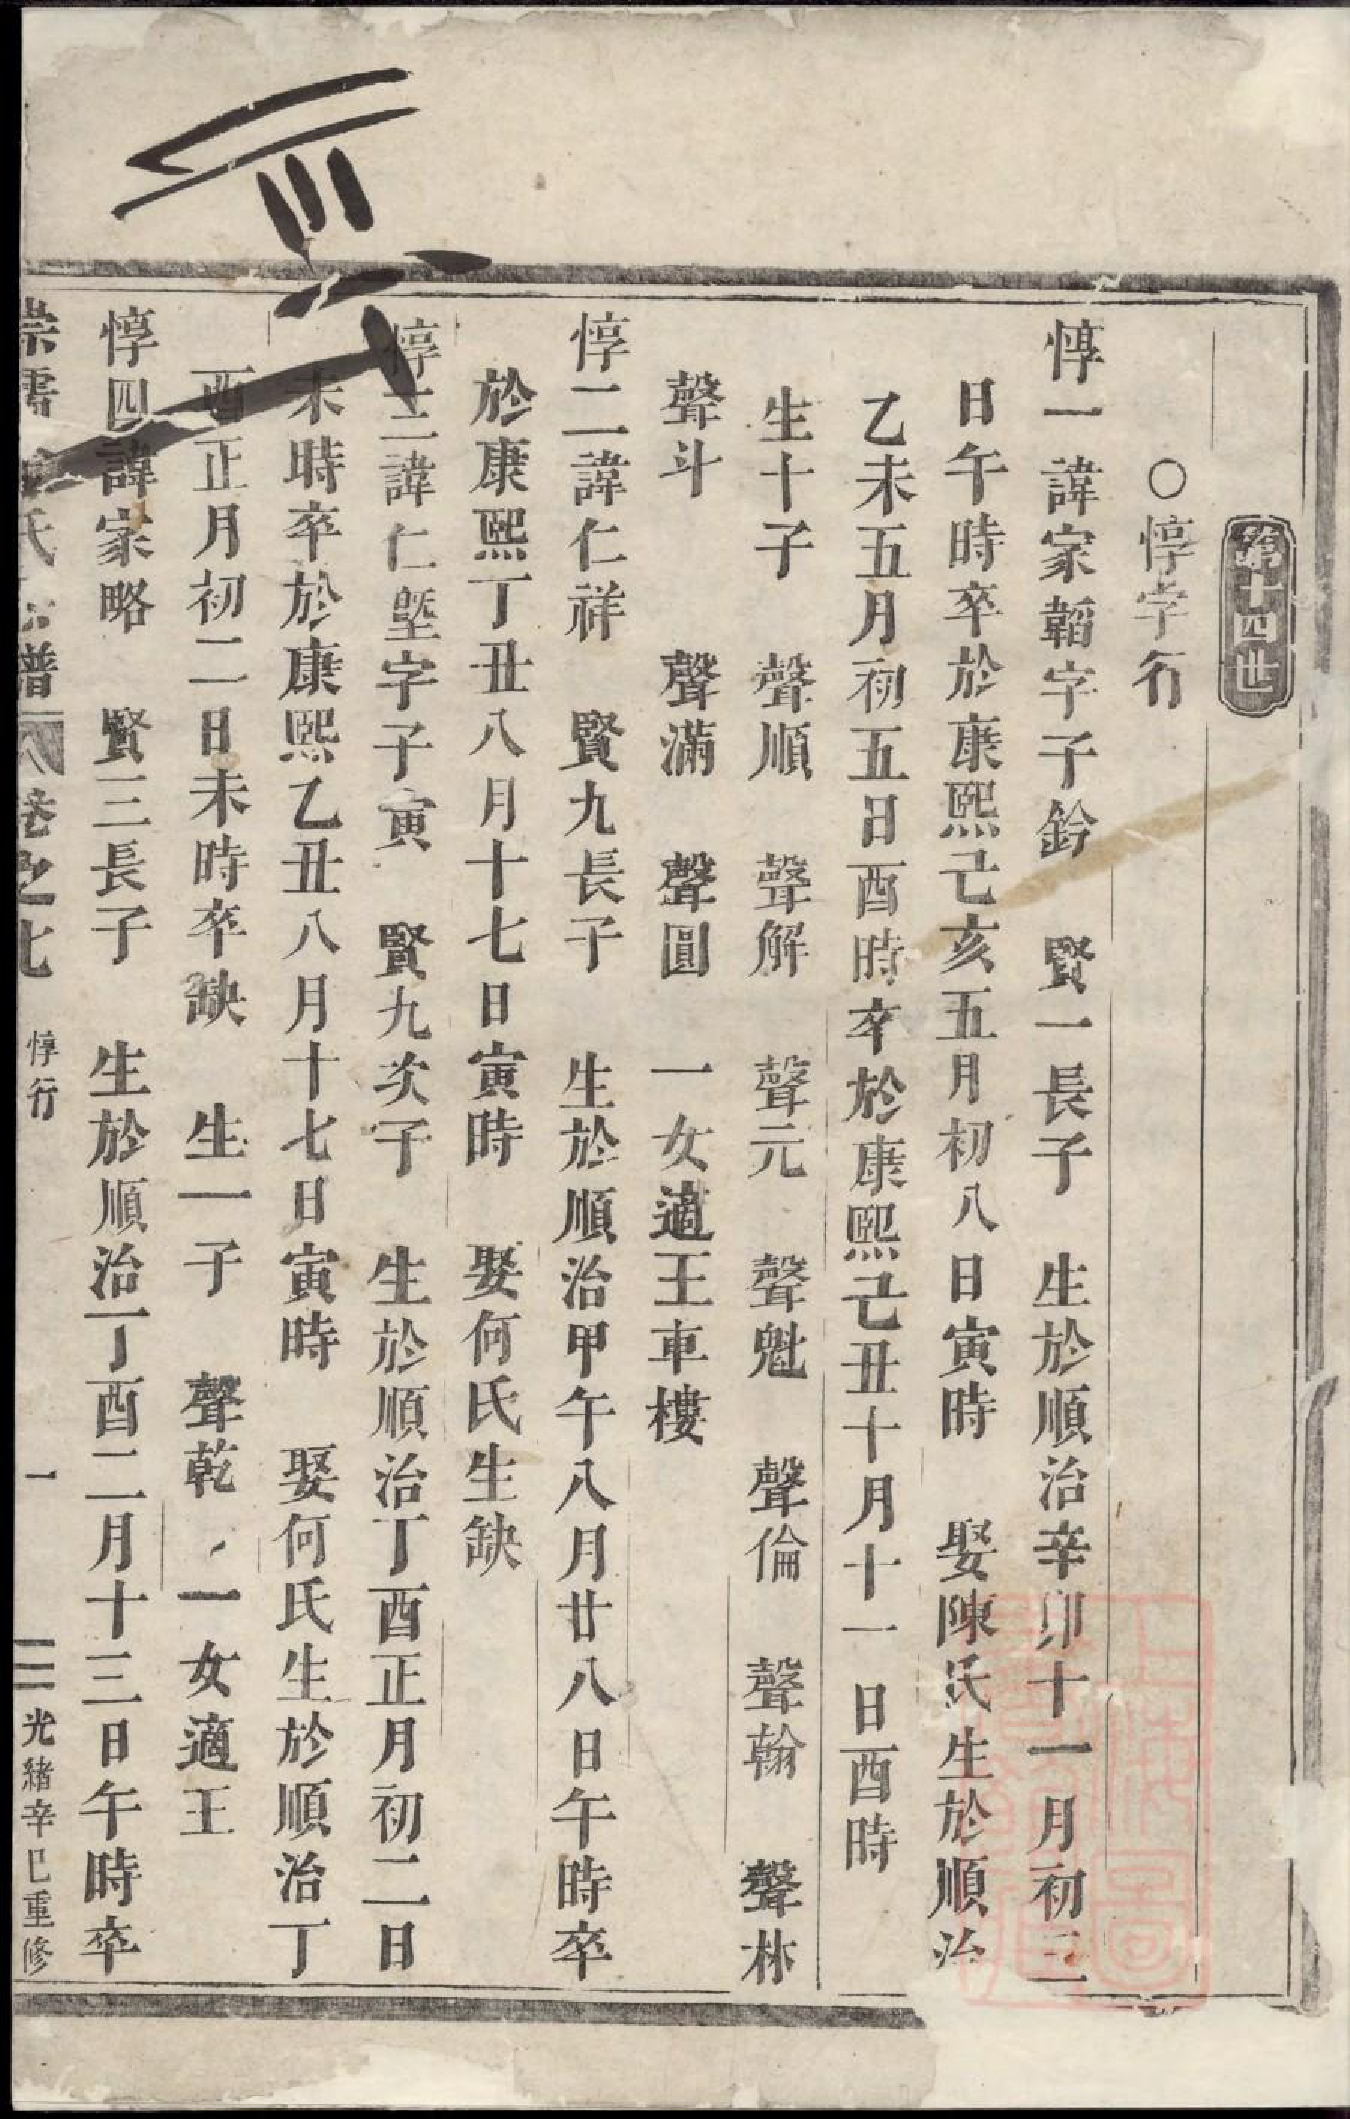 第十四世
○惇字行
惇一諱家韜字子鈐　賢一長子　生於順治辛卯十一月初三
日午時卒於康熙己亥五月初八日寅時　娶陳氏生於順治
乙未五月初五日酉時卒於康熙己丑十月十一日酉時
生十子　聲順　聲解　聲元　聲魁　聲倫　聲翰　聲林
聲斗　　聲滿　聲圓　一女適王車樓
惇二諱仁祥　賢九長子　生於順治甲午八月廿八日午時卒
於康熙丁丑八月十七日寅時　娶何氏生缺
惇三諱仁塈字子寅　賢九次子　生於順治丁酉正月初二日
未時卒於康熙乙丑八月十七日寅時　娶何氏生於順治丁
酉正月初二日未時卒缺　生一子　聲乾　一女適王
惇四諱家略　賢三長子　生於順治丁酉二月十三日午時卒
氏　譜　卷之七　惇行　一　光緒辛巳重修